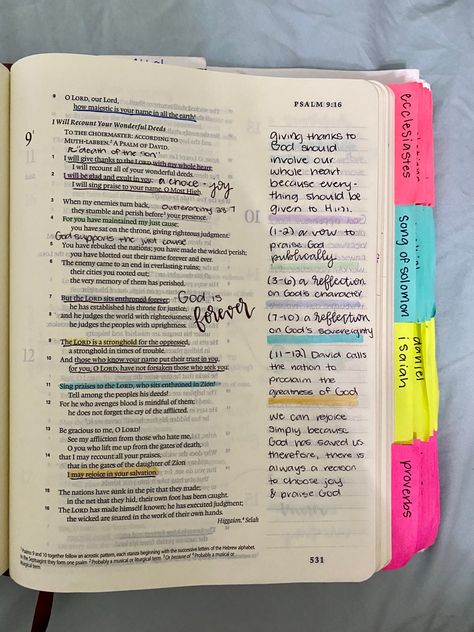 PSALM 9:16
9 O LORD, our Lord,
how majestic is your name in all the earth!
I Will Recount Your Wonderful Deeds
9 TO THE CHOIRMASTER: ACCORDING TO
MUTH-LABBEN. A PSALM OF DAVID.
"death of the son"
I will give thanks to the LORD with my whole heart;
I will recount all of your wonderful deeds.
2 I will be glad and exult in you; a choice - joy
I will sing praise to your name, O Most High.
3 When my enemies turn back,
they stumble and perish before your presence.
4 For you have maintained my just cause;
you have sat on the throne, giving righteous judgment.
God supports the just cause
5 You have rebuked the nations; you have made the wicked perish;
you have blotted out their name forever and ever.
6 The enemy came to an end in everlasting ruins;
their cities you rooted out;
the very memory of them has perished.
7 But the LORD sits enthroned forever; God is forever
he has established his throne for justice,
8 and he judges the world with righteousness;
he judges the peoples with uprightness.
9 The LORD is a stronghold for the oppressed,
a stronghold in times of trouble.
10 And those who know your name put their trust in you,
for you, O LORD, have not forsaken those who seek you.
11 Sing praises to the LORD, who sits enthroned in Zion!
Tell among the peoples his deeds!
12 For he who avenges blood is mindful of them;
he does not forget the cry of the afflicted.
13 Be gracious to me, O LORD!
See my affliction from those who hate me,
O you who lift me up from the gates of death,
14 that I may recount all your praises,
that in the gates of the daughter of Zion
I may rejoice in your salvation.
15 The nations have sunk in the pit that they made;
in the net that they hid, their own foot has been caught.
16 The LORD has made himself known; he has executed judgment;
the wicked are snared in the work of their own hands.
Higgaion. Selah
Psalms 9 and 10 together follow an acrostic pattern, each stanza beginning with the successive letters of the Hebrew alphabet.
In the Septuagint they form one psalm 2 Probably a musical or liturgical term 3 Or because of 4 Probably a musical or
liturgical term
giving thanks to
God should
involve our
whole heart
because every-
thing should be
given to Him.
(1-2) a vow to
praise God
publically
(3-6) a reflection
on God's character
(7-10) a reflection
on God's sovereignty
(11-12) David calls
the nation to
proclaim the
greatness of God
we can rejoice
simply because
God has saved us
therefore, there is
always a reason
to choose joy
& praise God
531
ecclesiastes
song of solomon
daniel
isaiah
proverbs